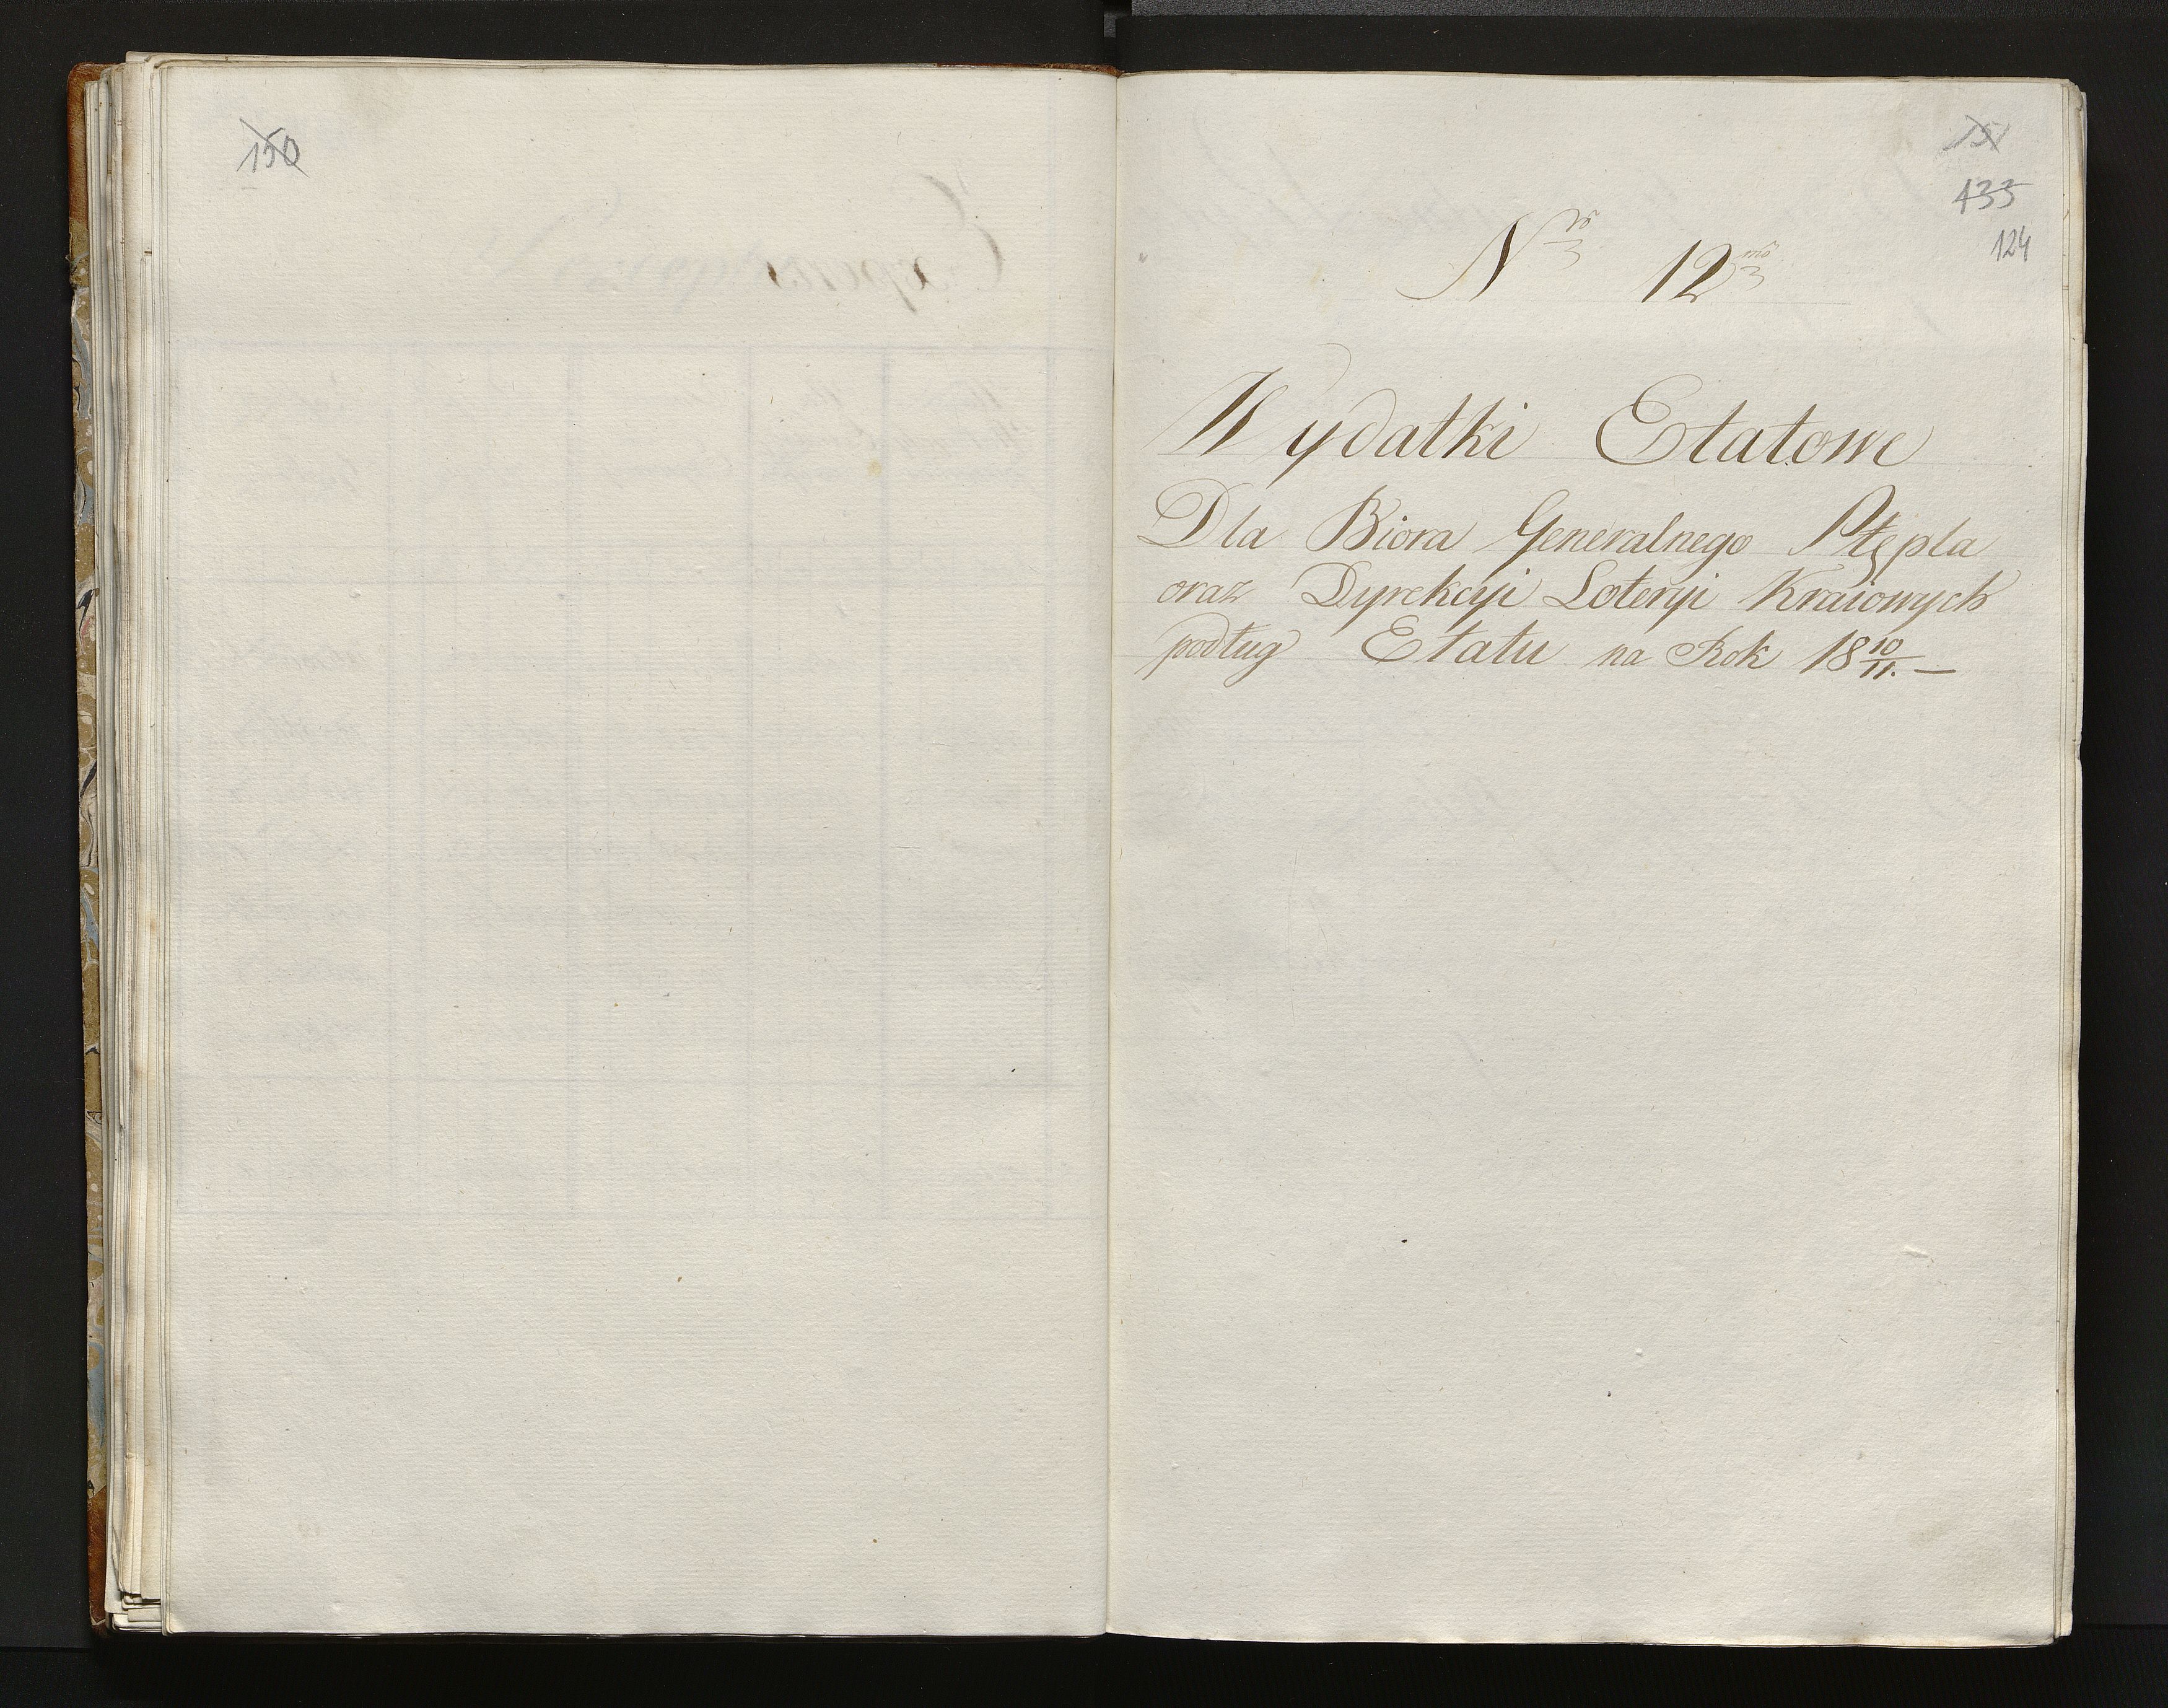 150
151
133
124
Nro 12mo
Wydatki Etatowe
Dla Biora Generalnego Stępla
oraz Dyrekcyi Loteryi Kraiowych
podług Etatu na Rok 18 10/11. —